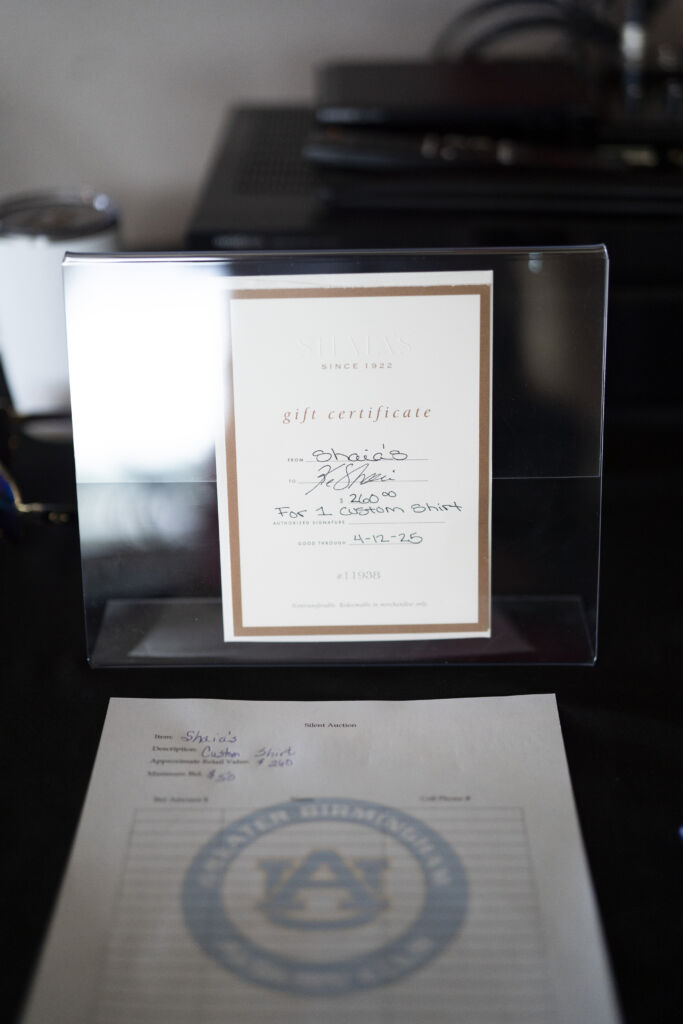 SHAIA'S
SINCE 1922
gift certificate
FROM Shaia's
TO
$ 260.00
For 1 Custom Shirt
AUTHORIZED SIGNATURE
GOOD THROUGH 4-12-25
#11938
Nontransferable Redeemable in merchandise only.
Silent Auction
Item: Shaia's
Description: Custom Shirt
Approximate Retail Value: $ 260
Minimum Bid: $50
Bid Amount $ Name Cell Phone #
GREATER BIRMINGHAM
AU
AUBURN CLUB